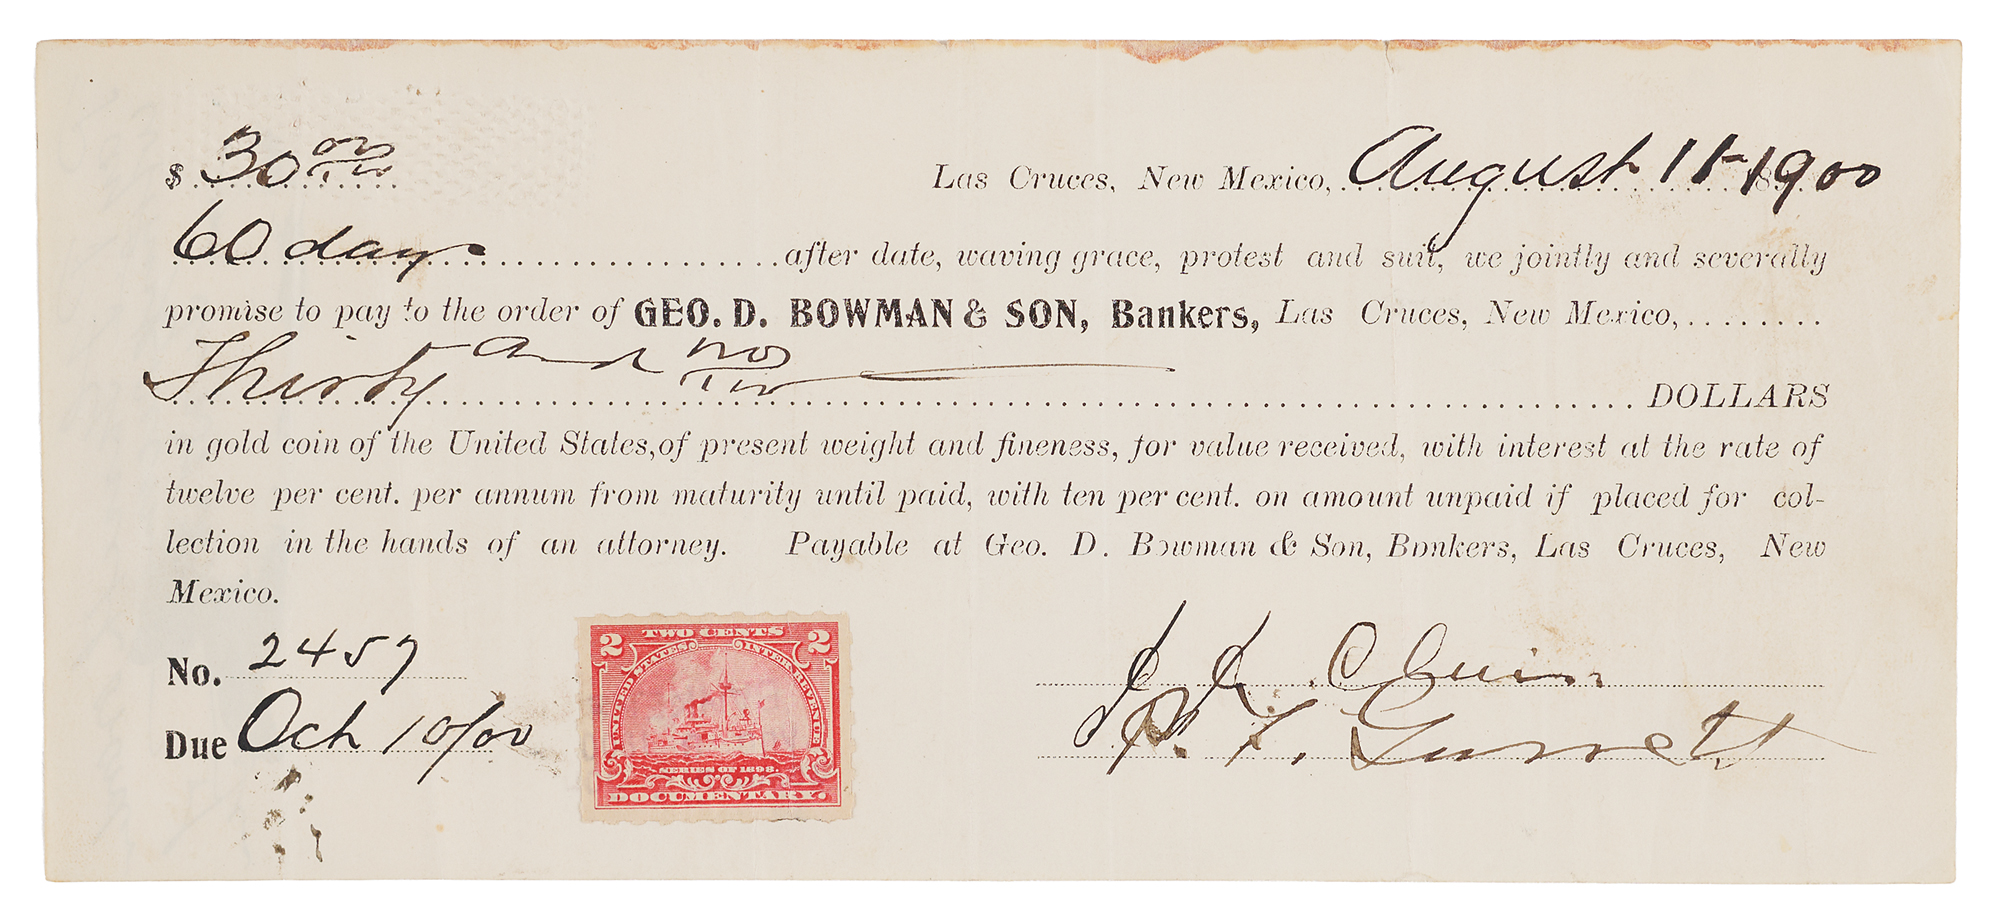 $ 30 00/100
Las Cruces, New Mexico, August 11 - 1900
60 days after date, waving grace, protest and suit, we jointly and severally
promise to pay to the order of GEO. D. BOWMAN & SON, Bankers, Las Cruces, New Mexico,
Thirty and no/100 DOLLARS
in gold coin of the United States, of present weight and fineness, for value received, with interest at the rate of
twelve per cent. per annum from maturity until paid, with ten per cent. on amount unpaid if placed for col-
lection in the hands of an attorney. Payable at Geo. D. Bowman & Son, Bankers, Las Cruces, New
Mexico.
No. 2457
Due Oct 10/00
2 TWO CENTS 2
UNITED STATES INTER. REVENUE
SERIES OF 1898.
DOCUMENTARY.
P. F. Garrett